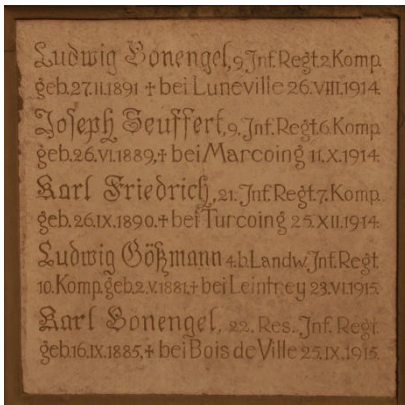 Ludwig Bonengel, 9. Inf. Regt. 2. Komp.
geb. 27.II.1891 ✝ bei Luneville 26.VIII.1914.
Joseph Seuffert, 9. Inf. Regt. 6. Komp.
geb. 26.VI.1889, ✝ bei Marcoing 11.X.1914.
Karl Friedrich, 21. Inf. Regt. 7. Komp.
geb. 26.IX.1890. ✝ bei Turcoing 25.XII.1914.
Ludwig Gößmann 4. b. Landw. Inf. Regt.
10. Komp. geb. 2.V.1881, ✝ bei Leintrey 23.VI.1915.
Karl Bonengel, 22. Res. Inf. Regt.
geb. 16.IX.1885, ✝ bei Bois de Ville 25.IX.1915.